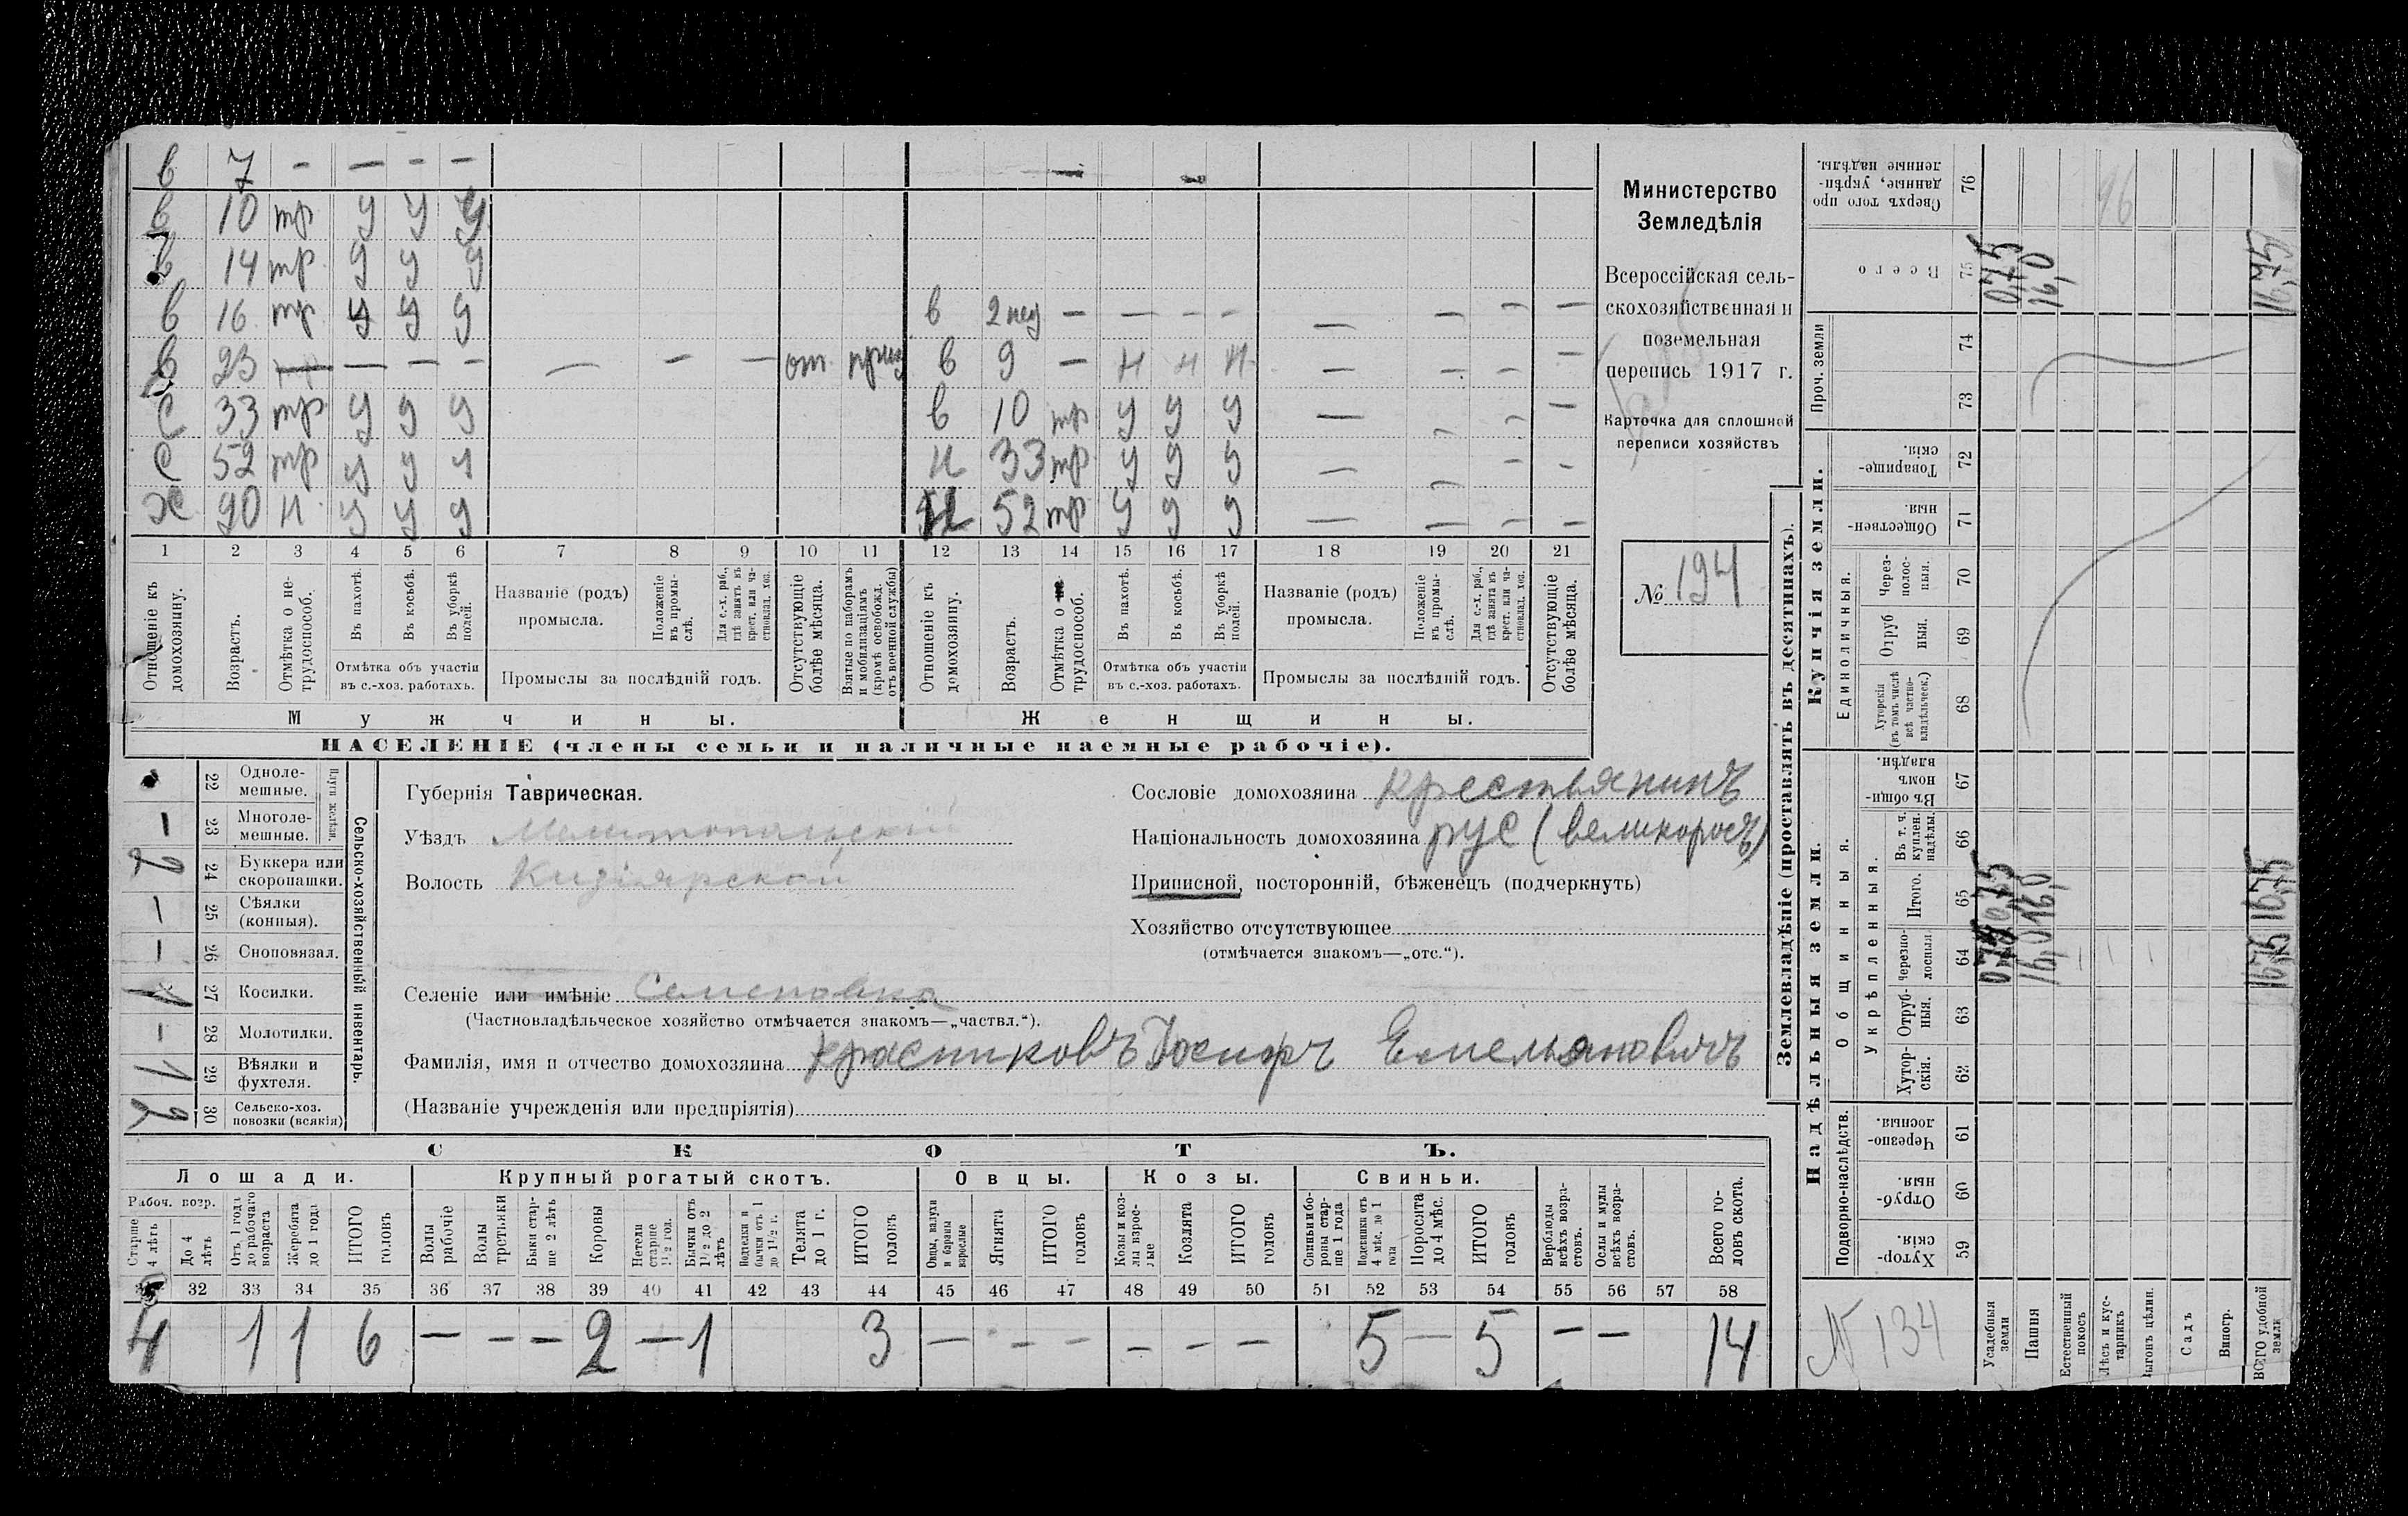 в 7 – – – –
в 10 тр у у у
в 14 тр у у у
в 16 тр у у у в 2 нед – – – – – – – –
в 23 – – – – – – – от. в 9 – н н н – – – –
с 33 тр у у у в 10 тр у у у – – – –
с 52 тр у у ч н 33 тр у у у – – – –
х 90 н у у у 52 тр у у у – – – –
1 2 3 4 5 6 7 8 9 10 11 12 13 14 15 16 17 18 19 20 21
Отношеніе къ домохозяину.
Возрастъ.
Отмѣтка о не-трудоспособ.
Въ пахотѣ.
Въ косьбѣ.
Въ уборкѣ полей.
Отмѣтка объ участіи въ с.-хоз. работахъ.
Названіе (родъ) промысла.
Положеніе въ промы-слѣ.
Для с.-х. раб., гдѣ занятъ въ крест. или ча-стновлад. хоз.
Промыслы за послѣдній годъ.
Отсутствующіе болѣе мѣсяца.
Взятые по наборамъ и мобилизаціямъ (кромѣ освобожд. отъ военной службы)
Отношеніе къ домохозяину.
Возрастъ.
Отмѣтка о не-трудоспособ.
Въ пахотѣ.
Въ косьбѣ.
Въ уборкѣ полей.
Отмѣтка объ участіи въ с.-хоз. работахъ.
Названіе (родъ) промысла.
Положеніе въ промы-слѣ.
Для с.-х. раб., гдѣ занята въ крест. или ча-стновлад. хоз.
Промыслы за послѣдній годъ.
Отсутствующіе болѣе мѣсяца.
Мужчины. Женщины.
НАСЕЛЕНІЕ (члены семьи и наличные наемные рабочіе).
Министерство
Земледѣлія
Всероссійская сель-
скохозяйственная и
поземельная
перепись 1917 г.
Карточка для сплошной
переписи хозяйствъ
№ 194
22 Одноле-мешные.
– 23 Многоле-мешные.
2 24 Буккера или скоропашки.
– 25 Сѣялки (конныя).
– 26 Сноповязал.
1 27 Косилки.
– 28 Молотилки.
1 29 Вѣялки и фухтеля.
2 30 Сельско-хоз. повозки (всякія)
Сельско-хозяйственный инвентарь.
Губернія Таврическая.
Уѣздъ Мелитопольскій
Волость Кизіярской
Сословіе домохозяина крестьянинъ
Національность домохозяина рус (великороссъ)
Приписной, посторонній, бѣженецъ (подчеркнуть)
Хозяйство отсутствующее
(отмѣчается знакомъ—„отс.“).
Селеніе или имѣніе Семеновка
(Частновладѣльческое хозяйство отмѣчается знакомъ—„частвл.“).
Фамилія, имя и отчество домохозяина Красниковъ Іосифъ Емельяновичъ
(Названіе учрежденія или предпріятія)
СКОТЪ.
Лошади. Крупный рогатый скотъ. Овцы. Козы. Свиньи.
Рабоч. возр.
Старше 4 лѣтъ
До 4 лѣтъ
Отъ 1 года до рабочаго возраста
Жеребята до 1 года
ИТОГО головъ
Волы рабочіе
Волы третьяки
Быки стар-ше 2 лѣтъ
Коровы
Нетели старше 1½ год.
Бычки отъ 1½ до 2 лѣтъ
Подтелки и бычки отъ 1 до 1½ г.
Телята до 1 г.
ИТОГО головъ
Овцы, валухи и бараны взрослые
Ягнята
ИТОГО головъ
Козы и коз-лы взрос-лые
Козлята
ИТОГО головъ
Свиньи и бо-ровы стар-ше 1 года
Подсвинки отъ 4 мѣс. до 1 года
Поросята до 4 мѣс.
ИТОГО головъ
Верблюды всѣхъ возра-стовъ.
Ослы и мулы всѣхъ возра-стовъ.
Всего го-ловъ скота.
32 33 34 35 36 37 38 39 40 41 42 43 44 45 46 47 48 49 50 51 52 53 54 55 56 57 58
4 1 1 6 – – – 2 – 1 3 – – – – – – 5 – 5 – – 14
Землевладѣніе (проставлять въ десятинахъ).
Купчія земли.
Надѣльныя земли.
Сверхъ того про-данные, укрѣп-ленные надѣлы. 76
Всего 75 0,75 16,0 16,75
96
Проч. земли 74 73
Товарище-скія. 72
Обществен-ныя. 71
Единоличныя.
Через-полос-ныя. 70
Отруб-ныя. 69
Хуторскія (въ томъ числѣ всѣ частно-владѣльческ.) 68
Общинныя.
Въ общин-номъ владѣн. 67
Укрѣпленныя.
Въ т. ч. куплен. надѣлы. 66
Итого. 65 0,75 16,0 16,75
Черезпо-лосныя 64 0,75 16,0 16,75
Отруб-ныя. 63
Хутор-скія. 62
Подворно-наслѣдств.
Черезпо-лосныя. 61
Отруб-ныя. 60
Хутор-скія. 59
№ 134
Усадебныя земли
Пашня
Естественный покосъ
Лѣсъ и кус-тарникъ
Выгонъ цѣлин.
Садъ
Виногр.
ВСЕГО удобной земли